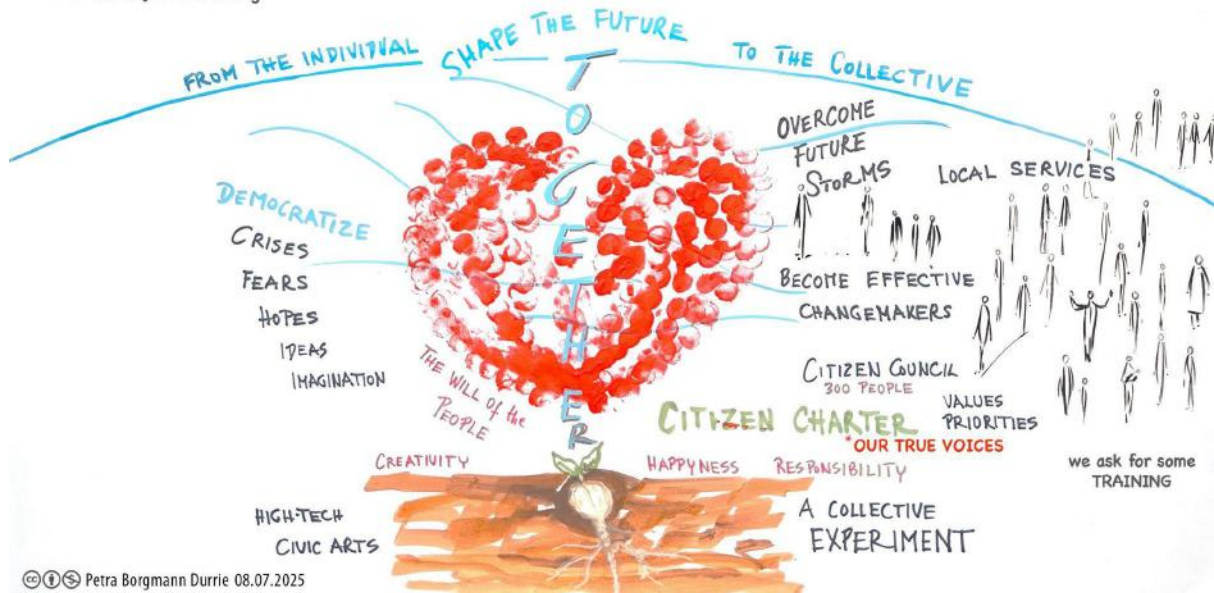 FROM THE INDIVIDUAL
SHAPE THE FUTURE
TO THE COLLECTIVE
TOGETHER
DEMOCRATIZE
CRISES
FEARS
HOPES
IDEAS
IMAGINATION
THE WILL of the
PEOPLE
OVERCOME
FUTURE
STORMS
LOCAL SERVICES
BECOME EFFECTIVE
CHANGEMAKERS
CITIZEN COUNCIL
300 PEOPLE
CITIZEN CHARTER
VALUES
PRIORITIES
*OUR TRUE VOICES
we ask for some
TRAINING
CREATIVITY
HAPPYNESS
RESPONSIBILITY
HIGH-TECH
CIVIC ARTS
A COLLECTIVE
EXPERIMENT
Petra Borgmann Durrie 08.07.2025